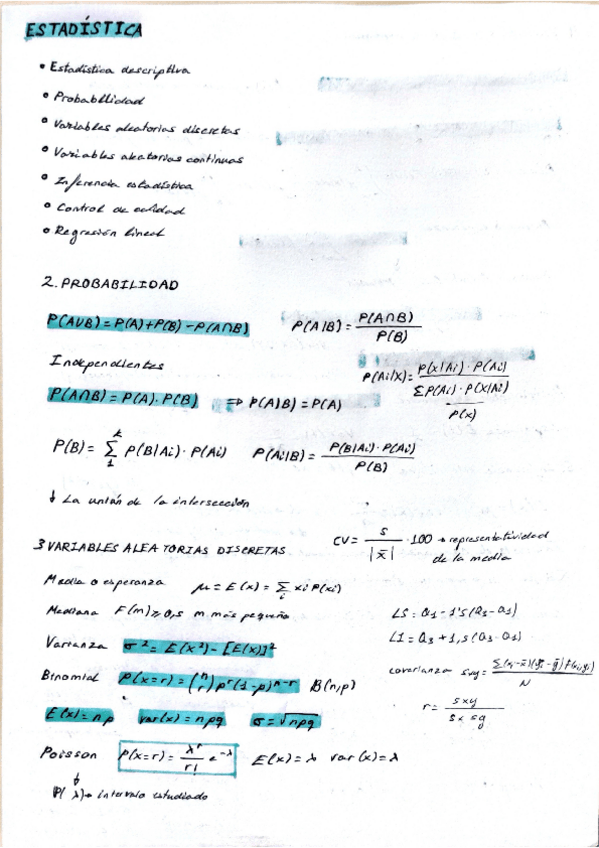 ESTADÍSTICA
• Estadística descriptiva
• Probabilidad
• Variables aleatorias discretas
• Variables aleatorias continuas
• Inferencia estadística
• Control de calidad
• Regresión lineal
2. PROBABILIDAD
P(A∪B) = P(A)+P(B) - P(A∩B)
P(A|B) = P(A∩B) / P(B)
Independientes
P(A∩B) = P(A). P(B) ⇒ P(A|B) = P(A)
P(Ai|X) = P(X|Ai) · P(Ai) / ΣP(Ai) · P(X|Ai)
P(x)
P(B) = Σ k 1 P(B|Ai) · P(Ai)
P(Ai|B) = P(B|Ai) · P(Ai) / P(B)
↓ La unión de la intersección
3 VARIABLES ALEATORIAS DISCRETAS
CV = S / |x̄| · 100 → representatividad de la media
Media o esperanza μ = E(x) = Σi xi P(xi)
Mediana F(m) ≥ 0,5 m más pequeño
LS = Q1 - 1'5 (Q3 - Q1)
LI = Q3 + 1,5 (Q3 - Q1)
Varianza σ² = E(x²) - [E(x)]²
covarianza Sxy = Σ(xi-x̄)(yi-ȳ) f(xi,yi) / N
Binomial P(x=r) = (n r) p^r (1-p)^n-r B(n,p)
r = sxy / sx sy
E(x) = np var(x) = npq σ = √npq
Poisson P(x=r) = λ^r / r! e^-λ E(x) = λ var(x) = λ
↓
P(λ) → intervalo estudiado